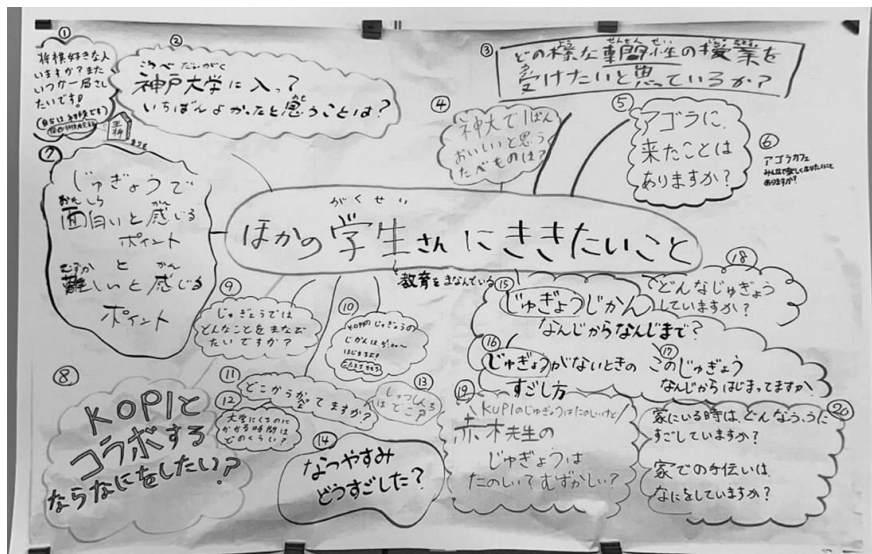 ほかの学生さんにききたいこと
がくせい
教育をまなんでいる
①
将棋好きな人
いますか？また
いつか一局さし
たいです！
王将
②
こうべ だいがく
神戸大学に入って
いちばんよかったと思うことは？
③
どの様な専門性の授業を
受けたいと思っているか？
④
神大で1ばん
おいしいと思う
たべものは？
⑤
アゴラに
来たことは
ありますか？
⑥
アゴラカフェ
ありますか？
⑦
じゅぎょうで
おもしろ かん
面白いと感じる
ポイント
と
むずか かん
難しいと感じる
ポイント
⑧
KOPIと
コラボする
ならなにをしたい？
⑨
じゅぎょうでは
どんなことをまなび
たいですか？
⑩
KOPIじゅぎょうの
じかんは
⑪
どこかうかがてますか？
⑫
大学にくるのに
かかる時間は
どのくらい？
⑬
しゅっしんち
はどこ？
⑭
なつやすみ
どうすごした？
⑮
じゅぎょうじかん
なんじからなんじまで？
⑯
じゅぎょうがないときの
すごし方
⑰
このじゅぎょう
なんじからはじまってますか
⑱
どんなじゅぎょう
していますか？
⑲
KUPIのじゅぎょうはたのしいけど
赤木先生の
じゅぎょうは
たのしい？むずかしい？
⑳
家にいる時は、どんなふうに
すごしていますか？
家での手伝いは、
なにをしていますか？